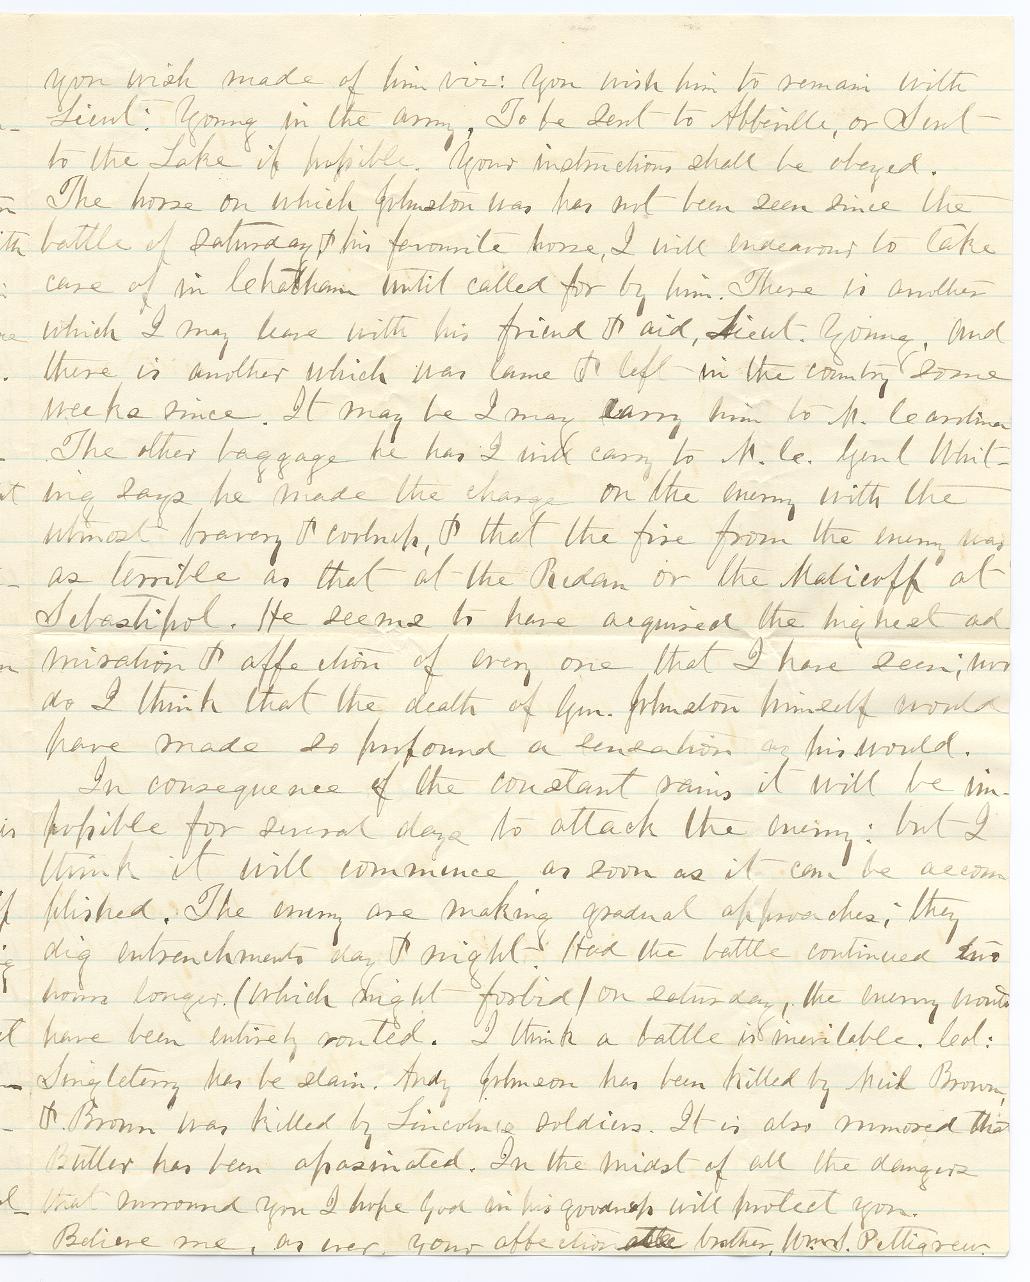 you wish made of him viz: you wish him to remain with
Lieut: Young in the army, To be sent to Abbeville, or Sent
to the Lake if possible. Your instructions shall be obeyed.
The horse on which Johnston was has not been seen since the
battle of saturday & his favourite horse, I will endeavour to take
care of in Chatham until called for by him. There is another
which I may leave with his friend & aid, Lieut. Young, and
there is another which was lame & left in the country some
weeks since. It may be I may carry him to N. Carolina
The other baggage he has I will carry to N. C. Genl Whit-
ing says he made the charge on the enemy with the
utmost bravery & coolness, & that the fire from the enemy was
as terrible as that at the Redan or the Malicoff at
Sebastipol. He seems to have acquired the highest ad
miration & affection of every one that I have seen; nor
do I think that the death of Gen. Johnston himself would
have made so profound a sensation as his would.
In consequence of the constant rains it will be im-
possible for several days to attack the enemy: but I
think it will commence as soon as it can be accom
plished. The enemy are making gradual approaches; they
dig entrenchments day & night. Had the battle continued two
hours longer (which night forbid) on saturday, the enemy would
have been entirely routed. I think a battle is inevitable. Col:
Singletary has be slain. Andy Johnson has been killed by Neil Brown,
& Brown was killed by Lincoln's soldiers. It is also rumored that
Butler has been assasinated. In the midst of all the dangers
that surround you I hope God in his goodness will protect you.
Believe me, as ever, your affectionate brother, Wm. S. Pettigrew.